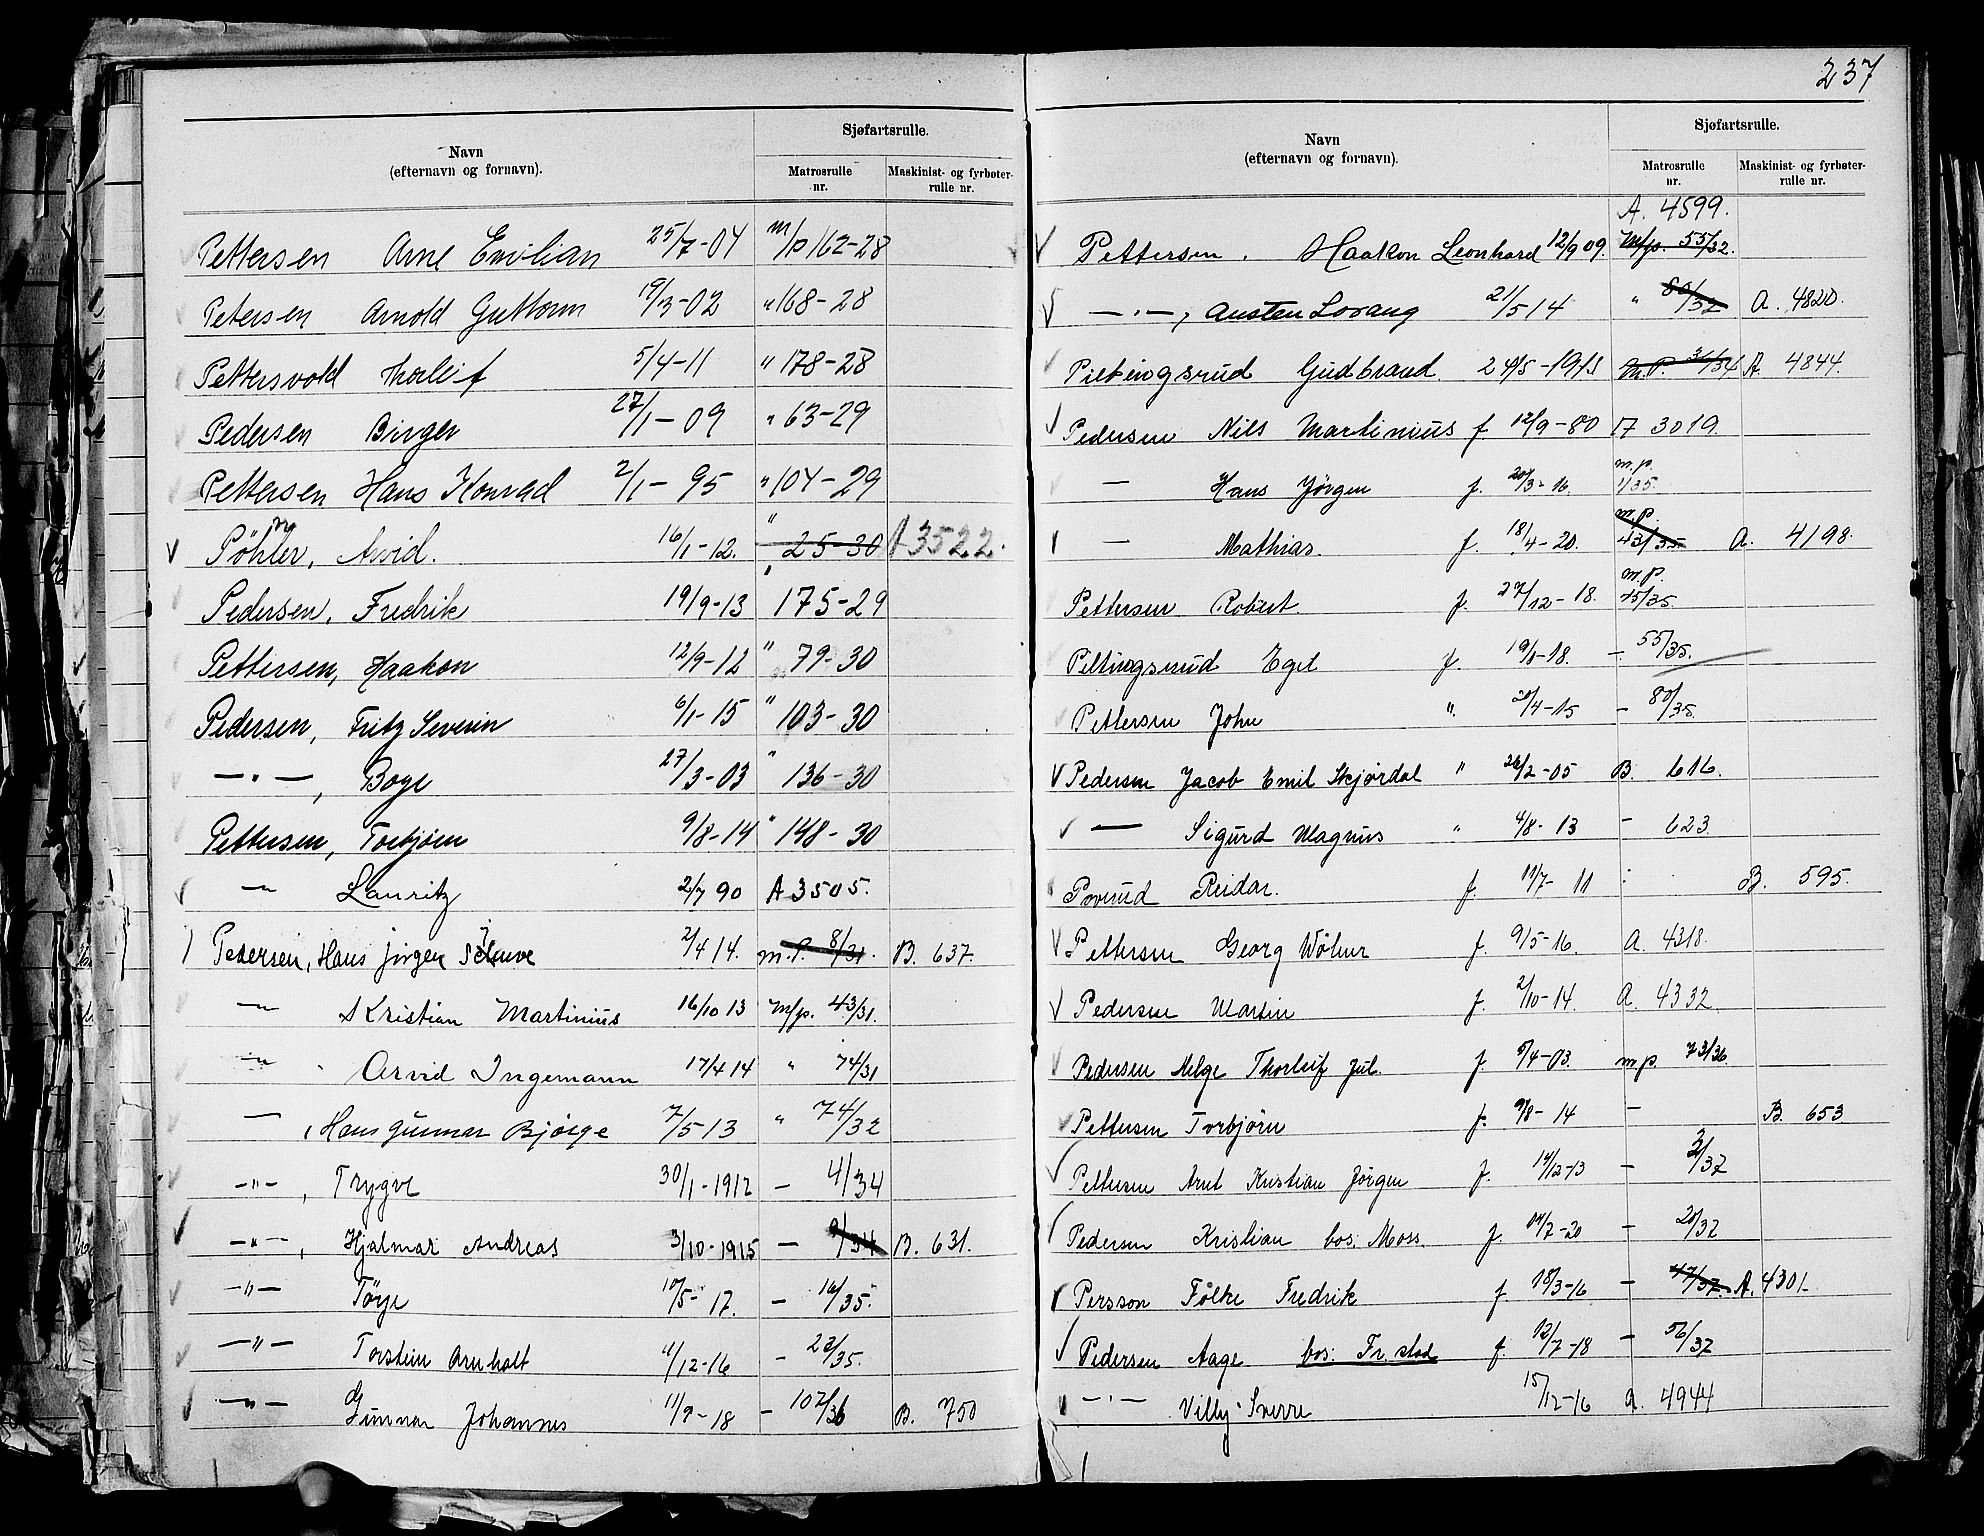 237
Navn
(efternavn og fornavn).
Sjøfartsrulle.
Matrosrulle nr.
Maskinist- og fyrbøter-rulle nr.
Pettersen Arne Emilian 25/7-04 m/p 162-28
Petersen Arnold Guttorm 19/3-02 " 168-28
Pettersvold Thorleif 5/4-11 " 178-28
Pedersen Birger 27/1-09 " 63-29
Pettersen Hans Konrad 2/1-95 " 104-29
Pöhler, Arvid. 16/1-12. " 25-30 A 3522.
Pedersen, Fredrik 19/9-13 " 175-29
Pettersen, Haakon 12/9-12 " 79-30
Pedersen, Fritz Severin 6/1-15 " 103-30
—"—, Boge 27/3-03 " 136-30
Pettersen, Torbjørn 9/8-14 " 148-30
—"— Lauritz 2/7 90 A 3505.
Pedersen, Hans Jørgen 2/4 14. m.P. 8/31. B. 637.
—"— Kristian Martinius 16/10 13 M/p. 43/31.
—"— Arvid Ingemann 17/4 14 " 74/31
—, Hans Gunnar Bjørge 7/5-13 " 74/32
—"—, Trygve 30/1-1912 — 4/34
—"—, Hjalmar Andreas 3/10-1915 — 9/34 B. 631.
—"— Törje 10/5-17. — 16/35.
—"— Torstein Arnholt 11/12-16 — 23/35.
—"— Gunnar Johannes 11/9-18 — 102/36 B. 750
Navn
(efternavn og fornavn).
Sjøfartsrulle.
Matrosrulle nr.
Maskinist- og fyrbøter-rulle nr.
A. 4599.
Pettersen. Haakon Leonhard 12/9 09. M/p. 55/32.
—"—, Austen Lorang 21/5 14 " 80/32 A. 4820.
Piltingsrud Gudbrand 24/5-1913 M.P. 31/34 A. 4844.
Pedersen Nils Martinius f 12/9-80 A 3019.
— Hans Jörgen f. 20/3-16. m.p. 1/35.
— Mathias. f. 18/4-20. m.p. 43/35. A. 4198.
Pettersen Robert. f. 27/12-18. m.p. 45/35.
Piltingsrud Egil f. 19/1-18. — 55/35.
Pettersen John ". 20/4-15 — 80/35.
Pedersen Jacob Emil Skjørdal " 26/2-05 B. 616.
— Sigurd Magnus " 4/8-13 — 623.
Poverud Reidar. f. 11/7-11 B. 595.
Pettersen Georg f. 9/5-16. A. 4318.
Pedersen Martin f. 2/10-14. A. 4332.
Pedersen Helge Thorleif Jul. f. 5/4-03. m.p. 73/36.
Pettersen Torbjørn f. 9/8-14 — B. 653
Pettersen Arnt Kristian Jörgen f. 14/12-13 — 2/37
Pedersen Kristian bos: Moss. f. 14/7-20 — 20/37
Persson Folke Fredrik f. 18/3-16 — 47/37. A. 4301.
Pedersen Aage bos: Fr.stad f. 12/7-18 — 56/37
—"— Villy Sverre 15/12-16 A. 4944